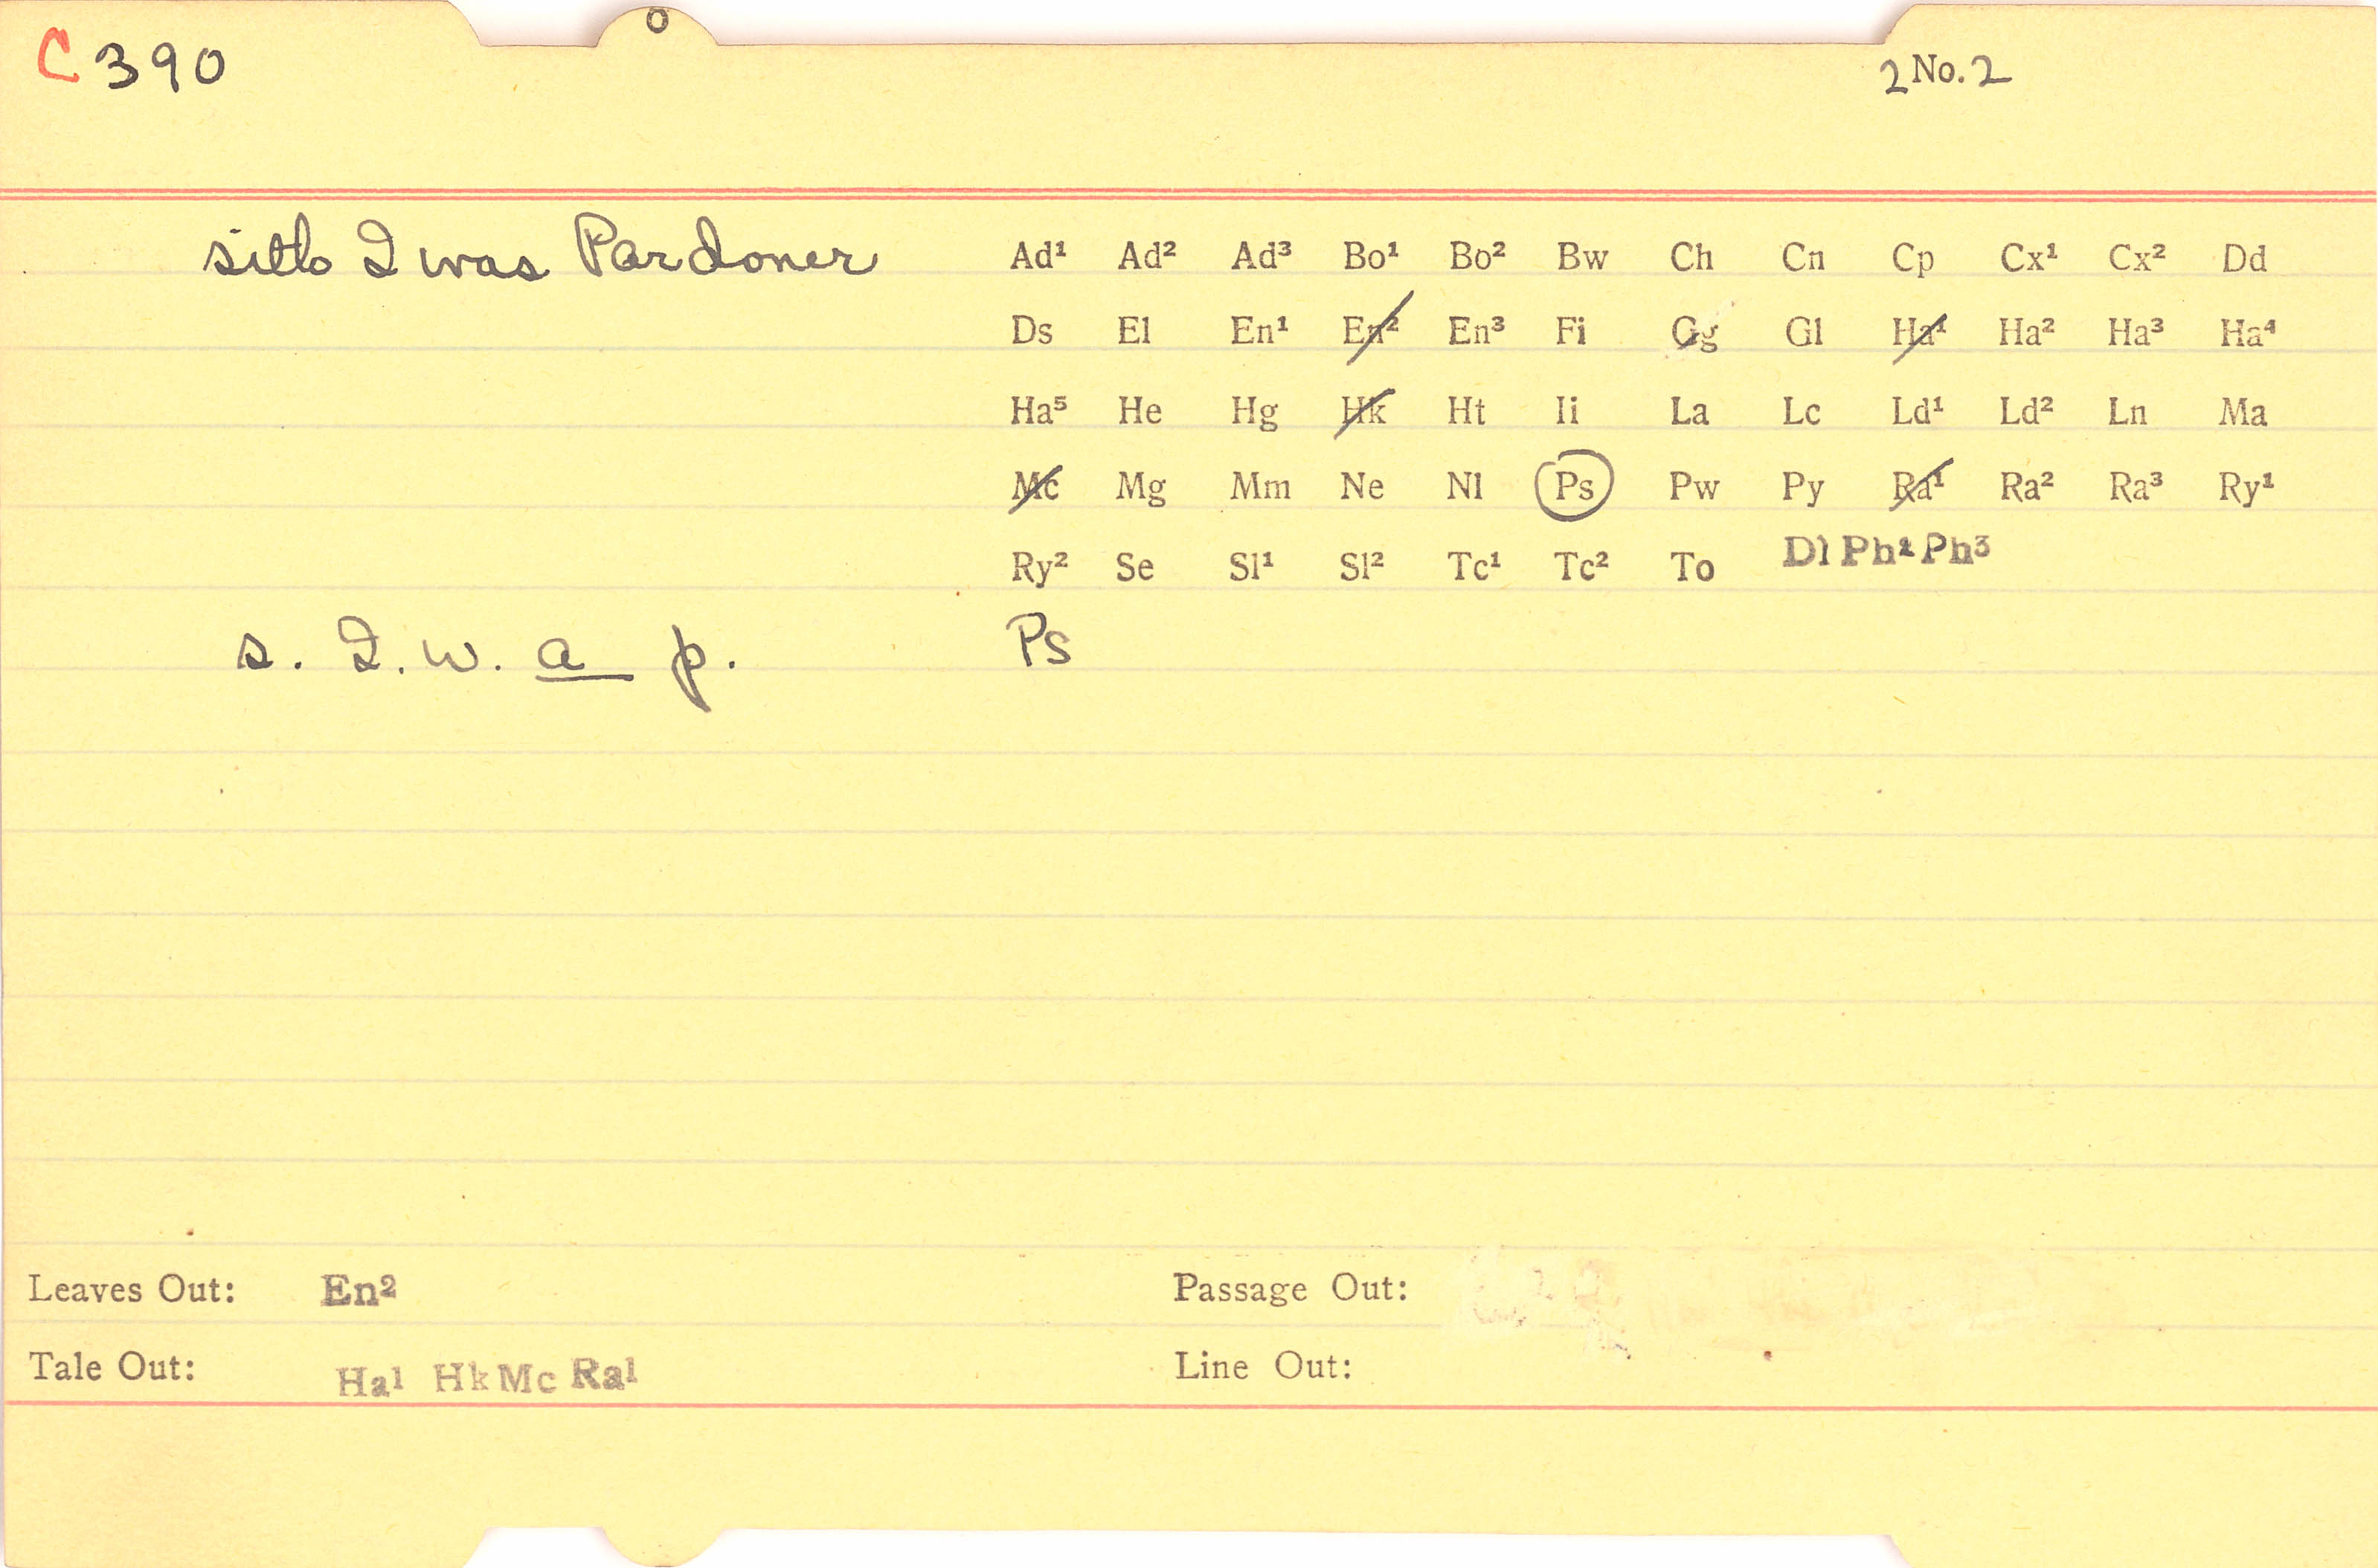 o
C 390 2 No. 2
sith I was Pardoner Ad¹ Ad² Ad³ Bo¹ Bo² Bw Ch Cn Cp Cx¹ Cx² Dd
Ds El En¹ En² En³ Fi Gg Gl Ha¹ Ha² Ha³ Ha⁴
Ha⁵ He Hg Hk Ht Ii La Lc Ld¹ Ld² Ln Ma
Mc Mg Mm Ne Nl Ps Pw Py Ra¹ Ra² Ra³ Ry¹
Ry² Se Sl¹ Sl² Tc¹ Tc² To Dl Ph² Ph³
s. I. w. a p. Ps
Leaves Out: En² Passage Out:
Tale Out: Ha¹ Hk Mc Ra¹ Line Out: